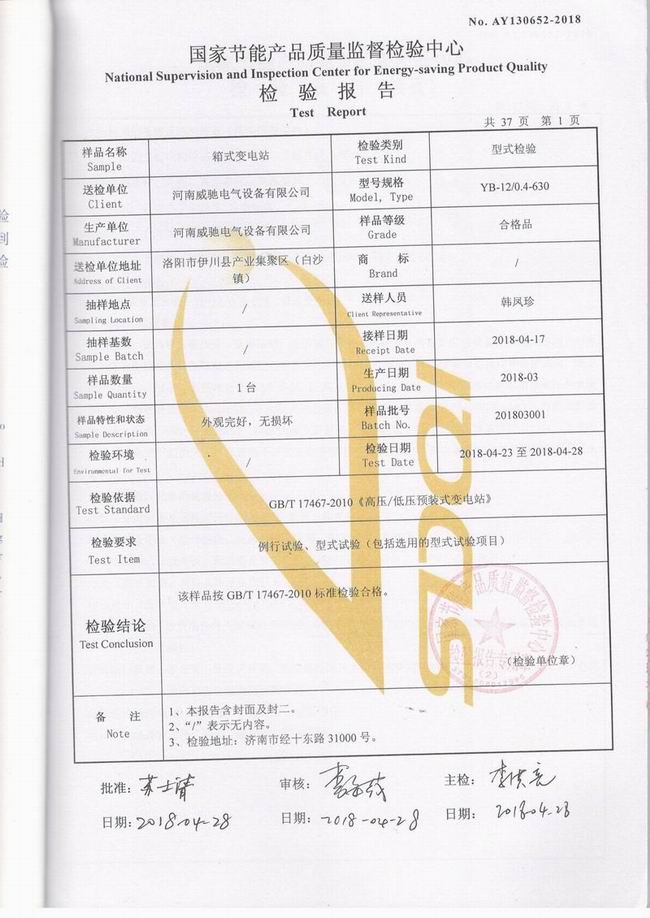 No. AY130652-2018
国家节能产品质量监督检验中心
National Supervision and Inspection Center for Energy-saving Product Quality
检 验 报 告
Test Report
共 37 页 第 1 页
样品名称 箱式变电站 检验类别 型式检验
Sample Test Kind
送检单位 河南威驰电气设备有限公司 型号规格 YB-12/0.4-630
Client Model, Type
生产单位 河南威驰电气设备有限公司 样品等级 合格品
Manufacturer Grade
送检单位地址 洛阳市伊川县产业集聚区（白沙镇） 商 标 /
Address of Client Brand
抽样地点 / 送样人员 韩凤珍
Sampling Location Client Representative
抽样基数 / 接样日期 2018-04-17
Sample Batch Receipt Date
样品数量 1 台 生产日期 2018-03
Sample Quantity Producing Date
样品特性和状态 外观完好，无损坏 样品批号 201803001
Sample Description Batch No.
检验环境 / 检验日期 2018-04-23 至 2018-04-28
Environmental for Test Test Date
检验依据 GB/T 17467-2010《高压/低压预装式变电站》
Test Standard
检验要求 例行试验、型式试验（包括选用的型式试验项目）
Test Item
该样品按 GB/T 17467-2010 标准检验合格。
检验结论
Test Conclusion
（检验单位章）
备 注
Note
1、本报告含封面及封二。
2、“/”表示无内容。
3、检验地址：济南市经十东路 31000 号。
批准： 审核： 主检：
日期：2018-04-28 日期：2018-04-28 日期：2018-04-28
SDQI